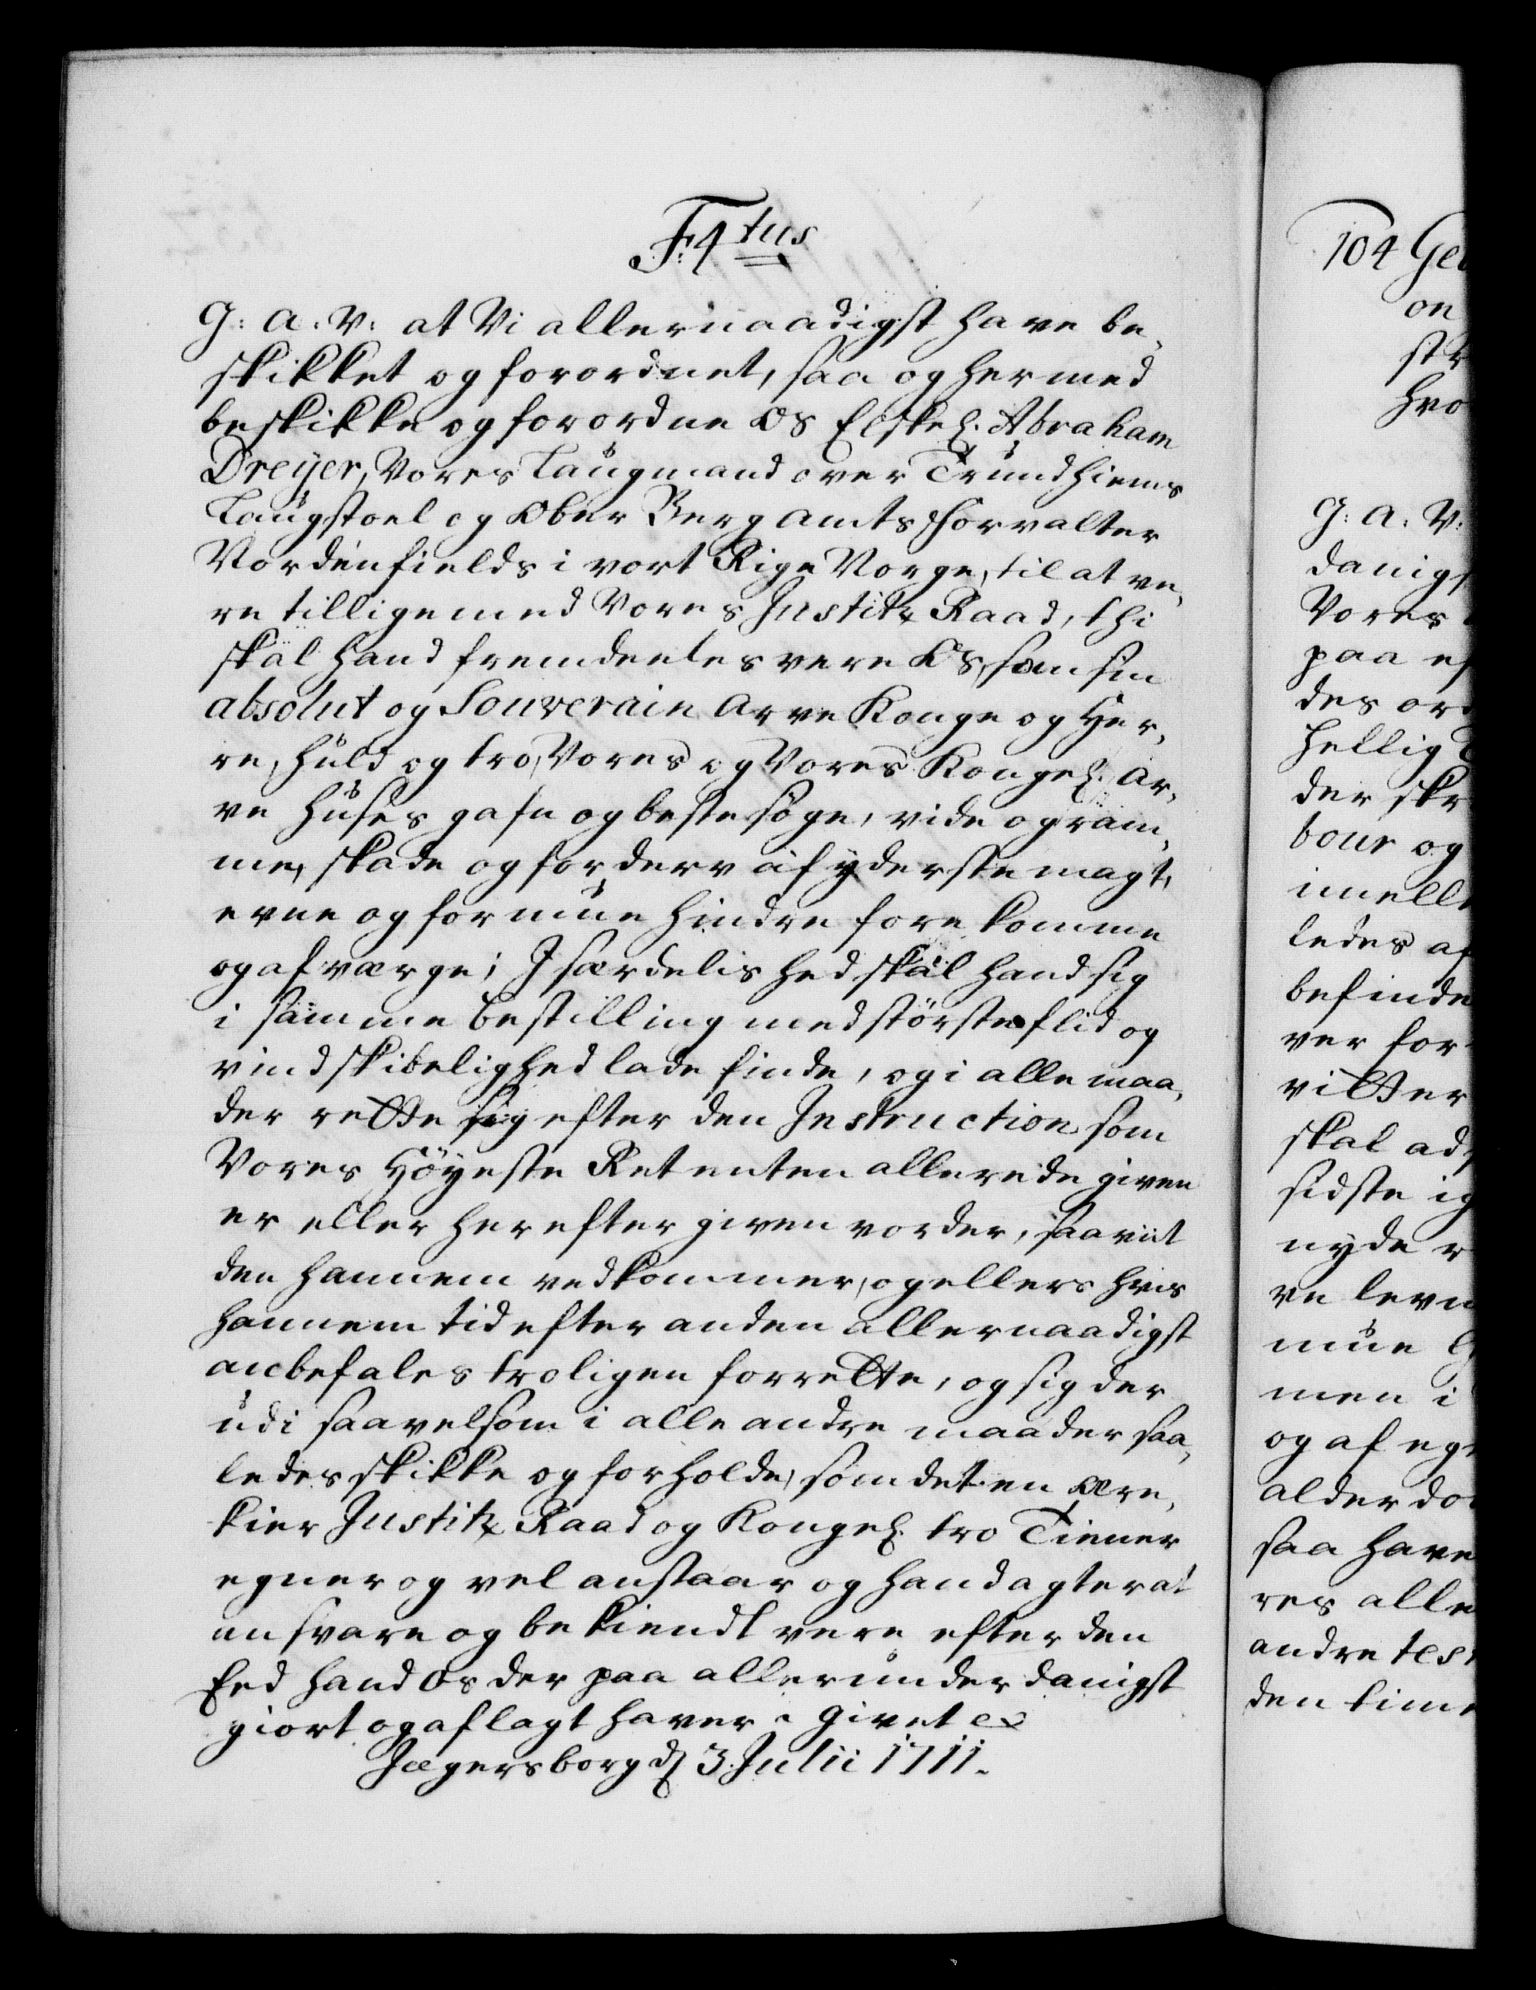 F. 4tus
G: A: V: at Vi allernaadigst have be-
skikket og forordnet, saa og hermed
beskikke og forordne Os Elskel. Abraham
Dreyer, Vores Laugmand over Trundhiems
Laugstoel og Ober Berg Amts Forvalter
Nordenfields i vort Rige Norge, til at ve-
re tillige med Vores Justitz Raad, thi
skal hand fremdeeles vere Os, som sin
absolut og Souverain Arve Konge og Her-
re, huld og tro, Vores og Vores Kongel. Ar-
ve Huses gafn og beste söge, vide og ram-
me, skade og forderv af yderste magt,
evne og formue hindre forekomme
og afværge; J særdelished skal hand sig
i samme bestilling med störste flid og
vindskibelighed lade finde, og i alle maa-
der rette sig efter den Instruction som
Vores Höyeste Ret enten allereede given
er eller herefter given vorder, saavit
den hannem vedkommer, og ellers hvis
hannem tid efter anden allernaadigst
anbefales troligen forrette, og sig der
udi saavelsom i alle andre maader saa-
ledes skikke og forholde, som det en ære-
kier Justitz Raad og Kongel. tro Tiener
egner og vel anstaar og hand agter at
ansvare og bekiendt vere efter den
Eed hand Os der paa allerunderdanigst
giort og aflagt haver. Givet
Jægersborg d. 3. Julii 1711.
104 Ge
on
st
hvo
G: A: V:
danigs
Vores
paa
des or
hellig
der skr
bour og
imell
ledes af
befinde
ver for
vitter
skal ad
sidste ig
nyde
ve leve
mue
men i
og af eg
alder do
saa have
res alle
andre tes
den time